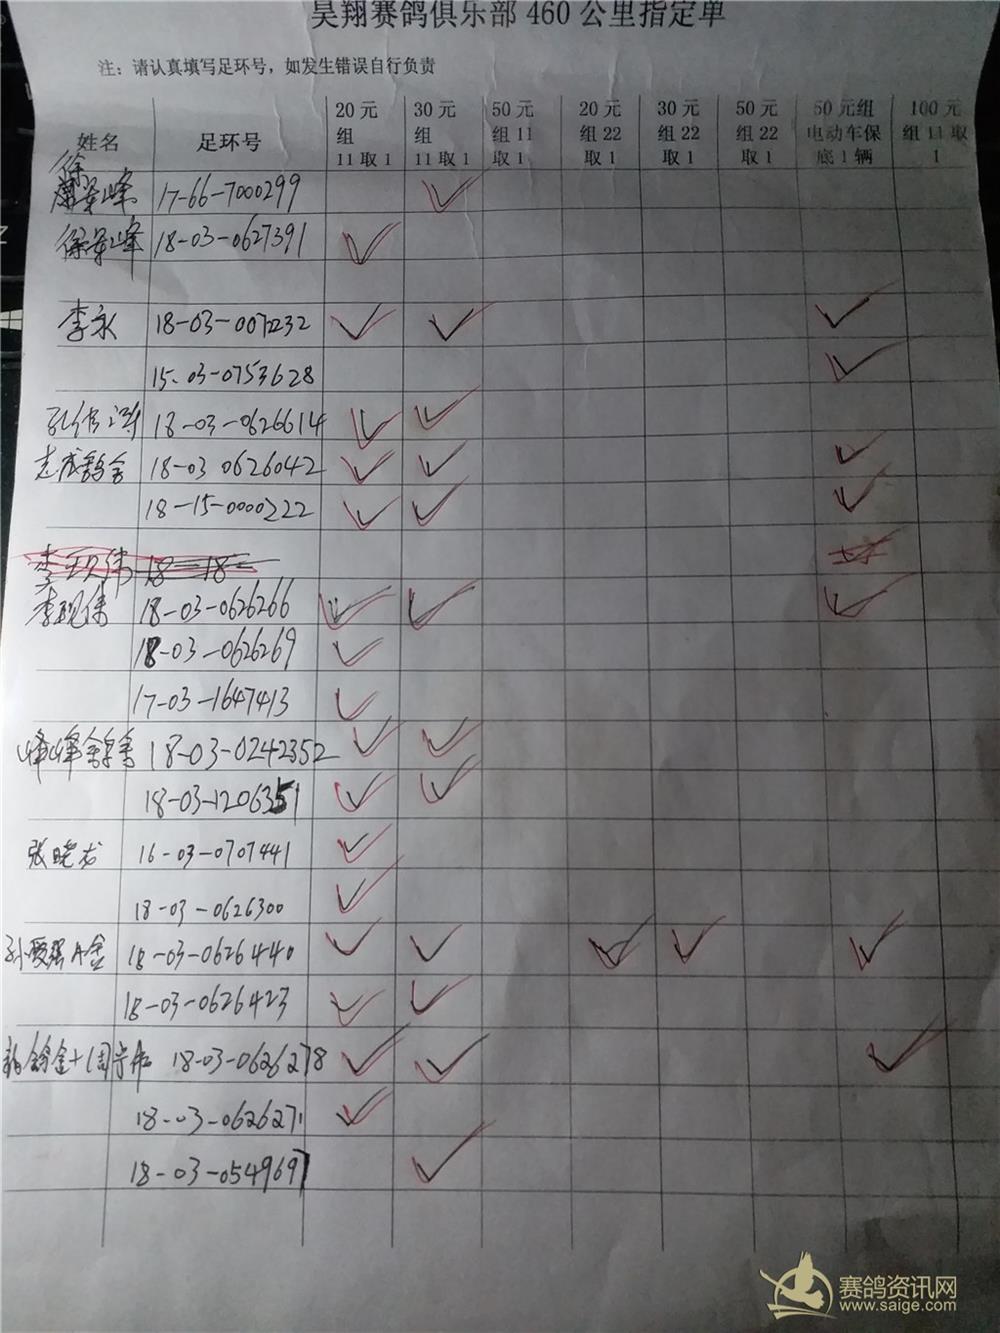 昊翔赛鸽俱乐部 460 公里指定单
注：请认真填写足环号，如发生错误自行负责
姓名 足环号 20 元组 11 取 1 30 元组 11 取 1 50 元组 11 取 1 20 元组 22 取 1 30 元组 22 取 1 50 元组 22 取 1 50 元组 电动车保底 1 辆 100 元组 11 取 1
徐
峰 17-66-7000299
徐军峰 18-03-0627391
李永 18-03-0072232
15-03-0753628
18-03-0626614
志成鸽舍 18-03 0626042
18-15-0000222
18-18-
李现伟 18-03-0626266
18-03-0626269
17-03-1647413
峰峰鸽舍 18-03-0242352
18-03-1206351
张晓龙 16-03-0707441
18-03-0626300
孙爱强 18-03-0626440
18-03-0626423
18-03-0626278
18-03-0626271
18-03-0549697
赛鸽资讯网
www.saige.com